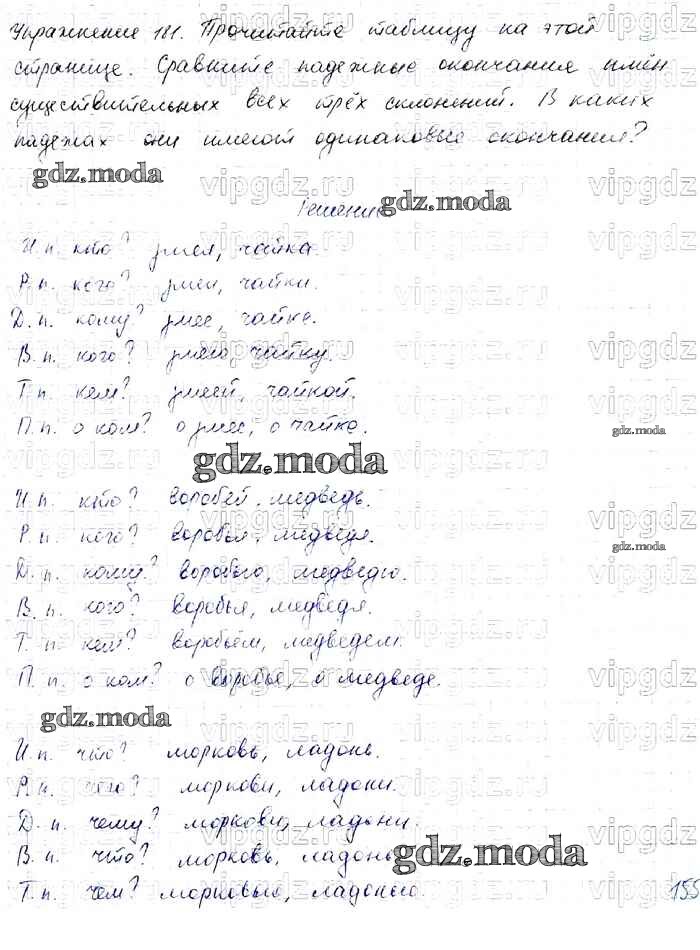 Упражнение 181. Прочитайте таблицу на этой
странице. Сравните падежные окончания имён
существительных всех трёх склонений. В каких
падежах они имеют одинаковые окончания?
gdz.moda
Решение
gdz.moda
И.п. кто? змея, чайка.
Р.п. кого? змеи, чайки.
Д.п. кому? змее, чайке.
В.п. кого? змею, чайку.
Т.п. кем? змеей, чайкой.
П.п. о ком? о змее, о чайке.
gdz.moda
gdz.moda
И.п. кто? воробей, медведь.
Р.п. кого? воробья, медведя.
gdz.moda
Д.п. кому? воробью, медведю.
В.п. кого? воробья, медведя.
Т.п. кем? воробьём, медведем.
П.п. о ком? о воробье, о медведе.
gdz.moda
И.п. что? морковь, ладонь.
Р.п. чего? моркови, ладони.
Д.п. чему? моркови, ладони.
В.п. что? морковь, ладонь
gdz.moda
Т.п. чем? морковью, ладонью.
155
vipgdz.ru